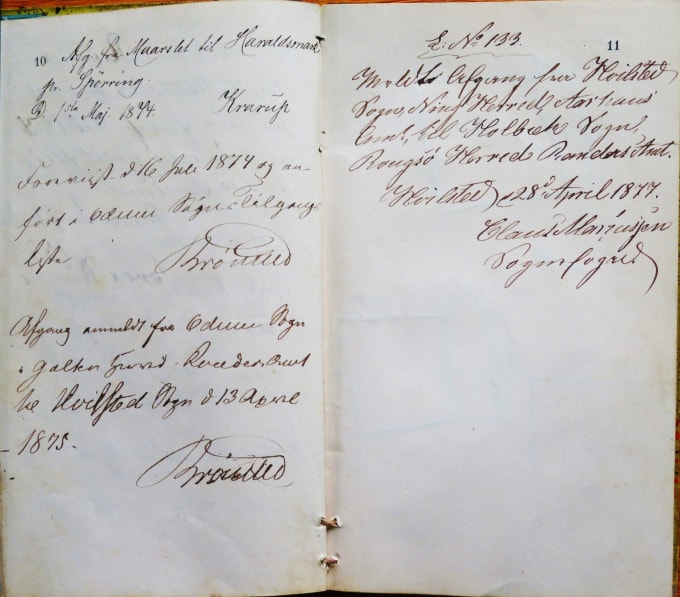 10
Afg. fra Maarslet til Haraldsmark
pr. Spørring.
D. 1ste Maj. 1874 Krarup
Forevist d. 16 Juli 1874 og an-
ført i Ødum Sogns Tilgangs
liste Brönsted
Afgang anmeldt fra Ødum Sogn
Galten Herred Randers Amt
til Hvilsted Sogn d 13 April
1875.
Brönsted
11
L: No 133.
Meldt Afgang fra Hvilsted
Sogn, Ning Herred, Aarhuus
Amt, til Holbek Sogn,
Rougsö Herred Randers Amt.
Hvilsted d 28d April 1877.
Claus Mariussen
Sognefoged